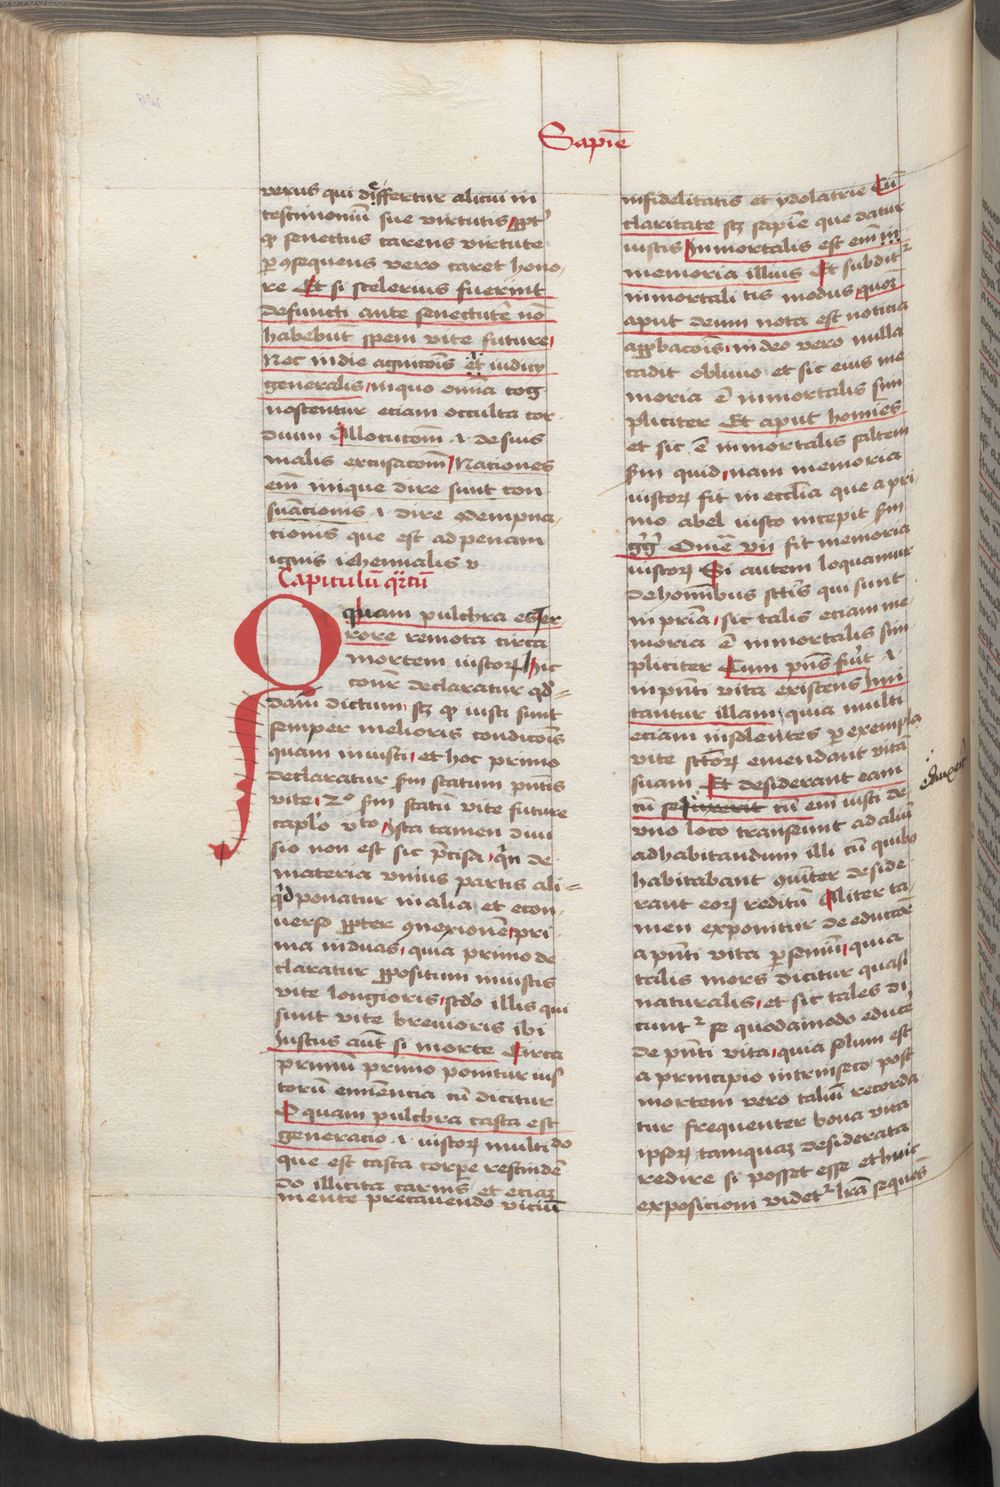 Sapiē
verus qui differtur alicui in
testimoniū sue virtutis ꝓpt̕
ꝙ senectus carens virtute
ꝑ ꝯsequens vero caret hono
re Et si celerius fuerint
defuncti ante senectutē nō
habebūt spem vite future
Nec in die agnitōis et iudicij
generalis in quo omīa cog
noscentur eciam occulta cor
dium Allocutōm .i. de suis
malis excusacōm Naciones
em̄ inique dire sunt con
sūacionis .i. dire ꝯdempna
cionis que est ad penam
ignis iehennalis
Capitulū qr̄tū
O quam pulchra est er
rore remota circa
mortem iustoꝝ hic
ꝯn̄r declaratur qd̄
dam̄ dictum sꝫ ꝙ iusti sunt
semper melioris condicōis
quam iniusti et hoc primo
declaratur s̄m statum pn̄tis
vite 2º s̄m statū vite future
caplo vto ista tamen diui
sio non est sic p̄cisa qn̄ de
materia vnius partis ali
qd̄ ponatur in alia et econ
uerso ꝓpter ꝯnexionē pri
ma in duas quia primo de
claratur ꝓpositum in iustis
vite longioris scd̄o illis qui
sunt vite breuioris ibi
Justus aūt si morte Circa
primū primo ponitur ius
torū eminencia cū dicitur
O quam pulchra casta est
generacio .i. iustoꝝ multi do
que est casta corꝑe rescindē
do illicita carnis et eciaꝫ
mente precauendo viciū
infidelitatis et ydolatrie Cū
claritate sꝫ sapiē que datur
iustis Inmortalis est em̄ in
memoria illius Et subdit̕
inmortali tis modus quoꝝ
aput deum nota est noticia
apꝓbacōis in deo vero nulla
cadit obliuio et sic eius me
moria ē inmortalis sim
pliciter Et aput homīes
et sic ē inmortalis saltem
s̄m quid nam memoria
iustoꝝ fit in ecclīa que a pri
mo abel iusto incepit s̄m
gg̅ Omē vij fit memoria
iustoꝝ Si autem loquamur
de homībus sctīs qui sunt
in pr̄ia sic talis eciam me
moria ē inmortalis sim
pliciter Cum pn̄s fu̇it .i.
in pn̄ti vita existens imi
tantur illam quia multi
eciam insolentes ꝑ exempla
vite sctōꝝ emendant vitā
suam Et desiderant eam
cū se duxerit cū em̄ iusti de
eduxerit
vno loco transeunt ad aliū
ad habitandum illi cū quibꝫ
habitabant ꝯmīter deside
rant eoꝝ reditū Aliter ta
men exponitur de eductōe
a pn̄ti vita ꝑ seniū quia
talis mors dicitur quasi
naturalis et sic tales di
cunt² se quodāmodo educē
de pn̄ti vita quia solum est
a principio intrinseco post
mortem vero taliū recorda
tur frequenter bona vita
ipsoꝝ tamquaꝫ desiderata
redire si posset esse et huic
exposicioni videt² lr̄a sequēs